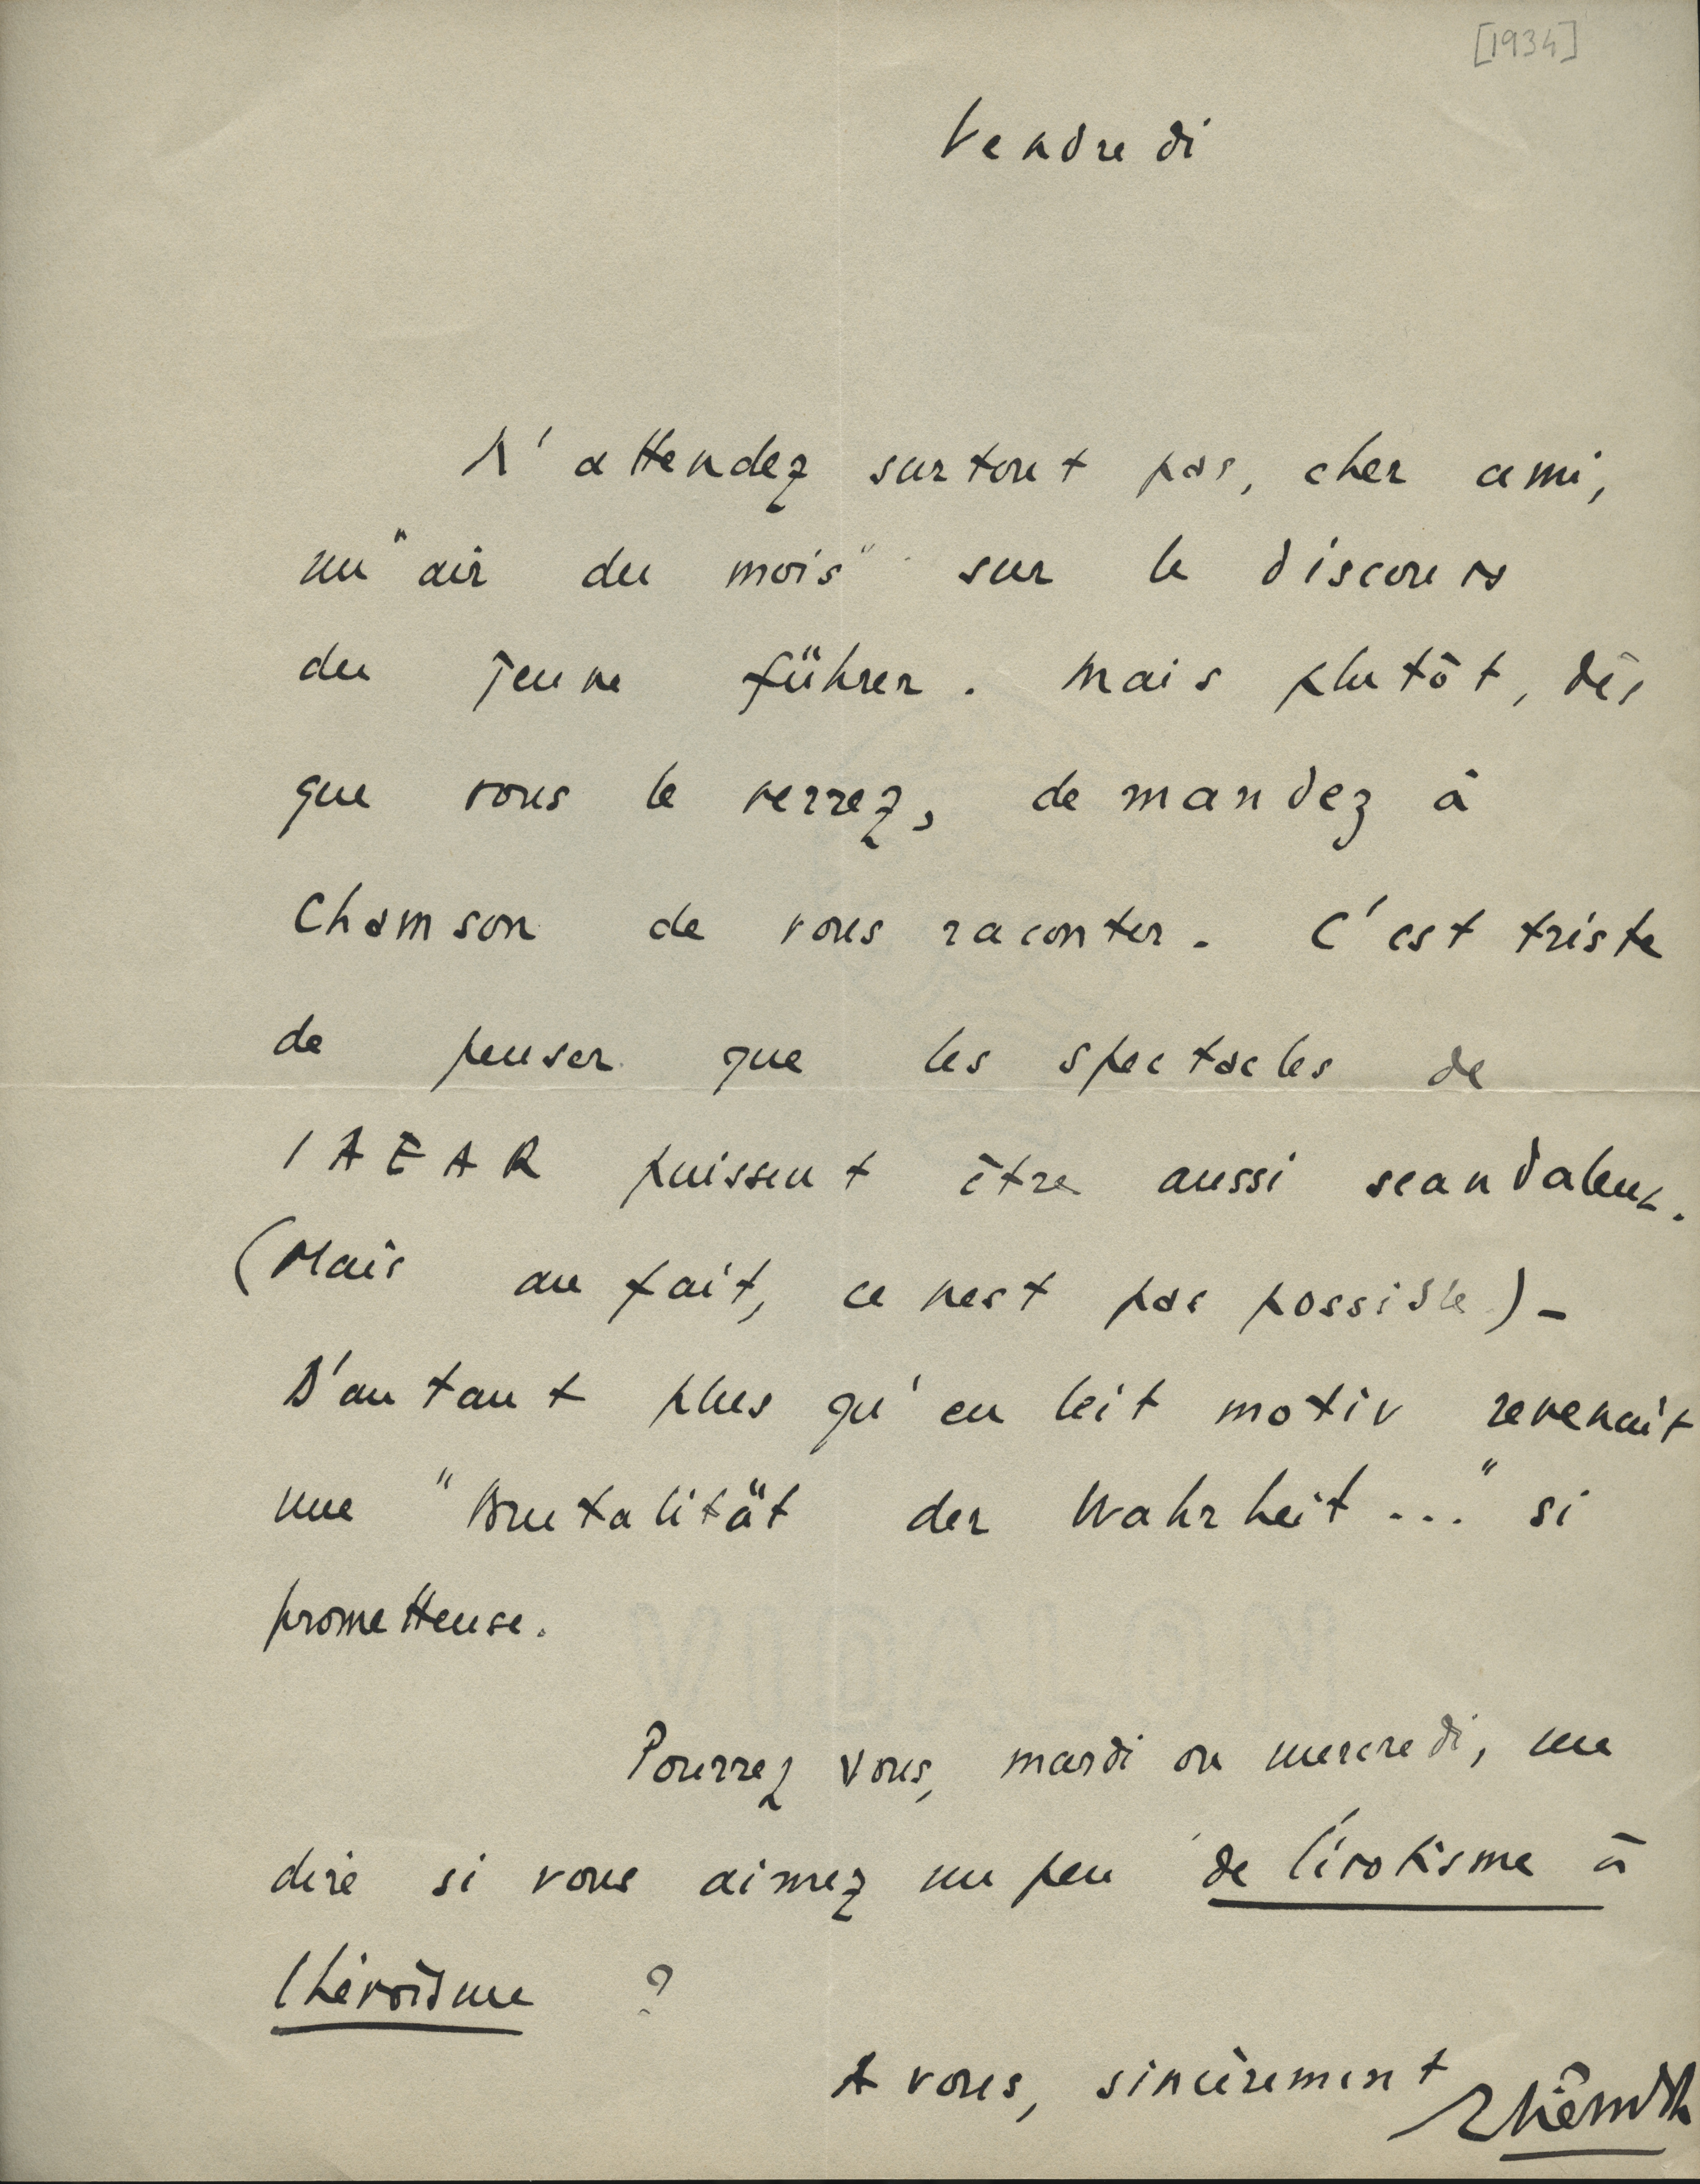 [1934]
Vendredi
N'attendez surtout pas, cher ami,
un "air du mois" sur le discours
du jeune führer. Mais plutôt, dès
que vous le verrez, demandez à
Chamson de vous raconter. C'est triste
de penser que les spectacles de
l AEAR puissent être aussi scandaleux.
(Mais au fait, ce nest pas possible) -
D'autant plus qu'en leit motiv revenait
une "Brutalität der Wahrheit..." si
prometteuse.
Pourrez vous, mardi ou mercredi, me
dire si vous aimez un peu de l'érotisme à
l héroïsme ?
A vous, sincèrement